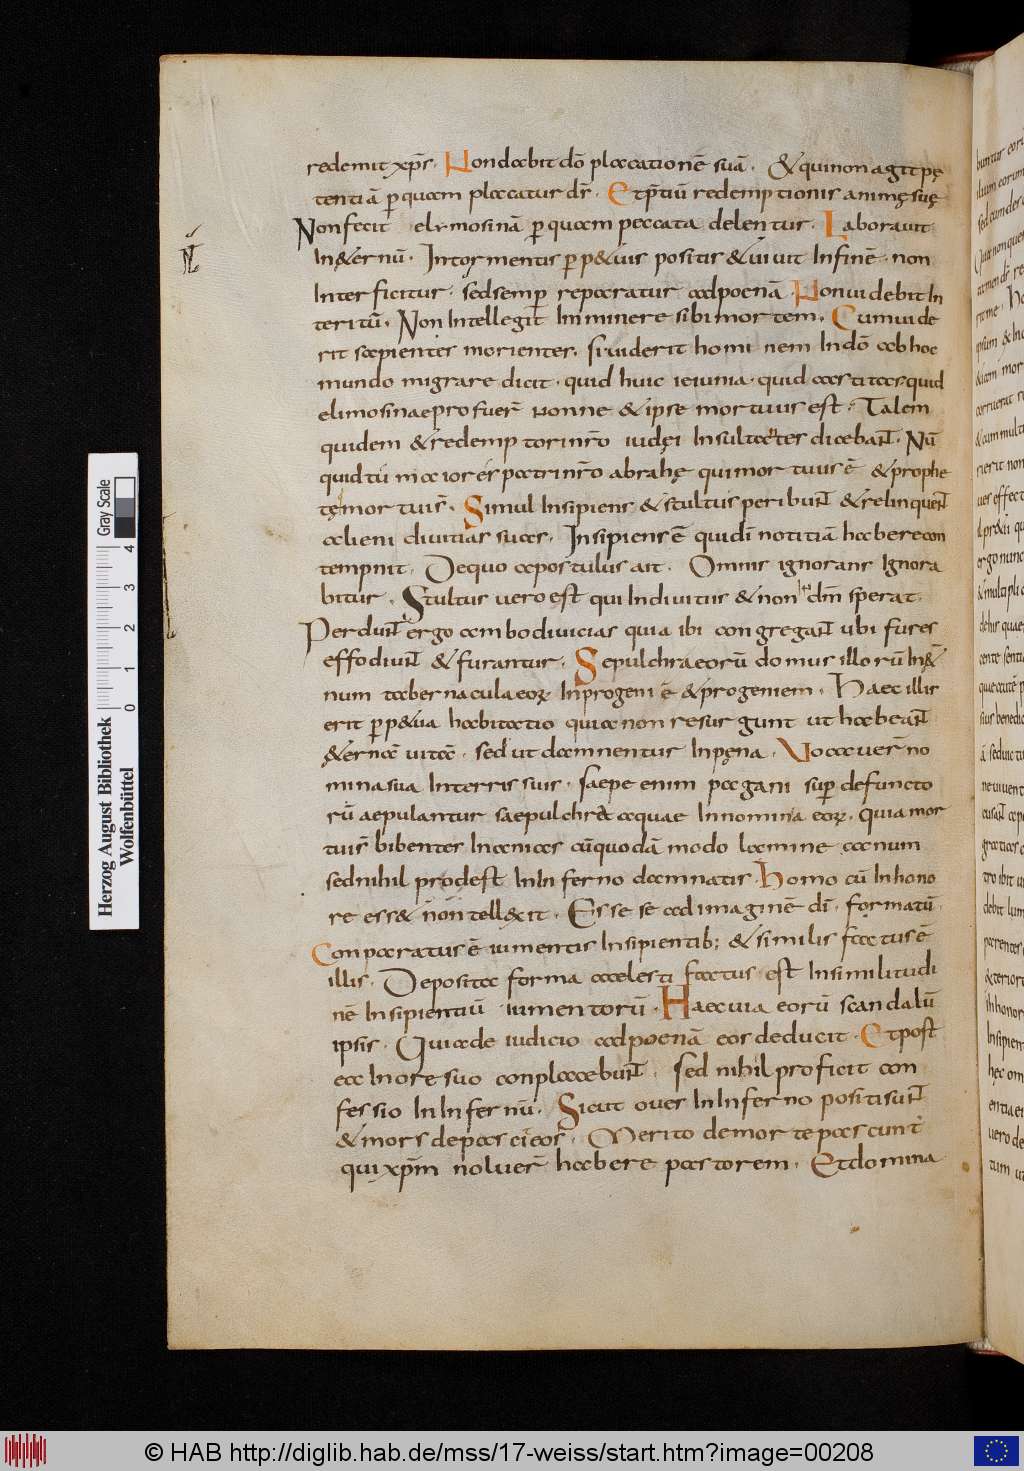 redemit xp̄s. Non dabit dō placationē suā. & qui non agit pę
tentiā ꝑ quam placatur ds̄. Et p̄tiū redemptionis animę suę
Non fecit elymosinā ꝑ quam peccata delentur. Laborauit
In &ernū. In tormentis ꝑp&uis positis & uiuit In finē. non
Interficitur. sed semꝑ reparatur ad poenā. Non uidebit In
teritū. Non Intellegit Inminere sibi mortem. Cum uide
rit sapientes morientes. si uiderit hominem In dō ab hoc
mundo migrare dicit. quid huic ieiunia. quid castitas quid
elimosinae profuer̄ nonne & ipse mortuus est. Talem
quidem & redemptori nr̄o iudęi Insultantes dicebant. Nū
quid tú maior es patri nr̄o abrahę qui mortuus ē & prophe
tę mortui s̄. Simul Insipiens & stultus peribunt & relinquent
alieni diuitias suas. Insipiens ē qui dī notitiā habere con
tempnit. De quo apostulus ait. Omnis ignorans Ignora
bitur. Stultus uero est qui In diuitus & non dm̄ sperat.
Perdunt ergo ambo diuicias quia ibi congregant ubi fures
effodiunt & furantur. Sepulchra eorū domus illorū In &
num tabernacula eoꝝ In progeniē & progeniem. Haec illis
erit ꝑp&ua habitatio quia non resurgunt ut habeant
&ernā uitā. sed ut damnentur In pęna. Vocauer̄ no
mina sua In terris suis. saepe enim pagani suꝑ defuncto
rū aepulantur saepulchra atquae In nomina eoꝝ. quia mor
tuis bibentes In amicos cū quodā modo lacmine
sed nihil prodest In Inferno damnatis. Homo cū In hono
re ess& non Intell&xit. Esse se ad imaginē dī formatū.
Conparatus ē iumentis Insipientib; & similis factus ē
illis. Deposita forma caelesti factus est In similitudi
nē Insipientiū iumentorū. Haec uia eorū scandalū
ipsis. Quia de iudicio ad poenā eos deducit. Et post
ea In ore suo conplacebunt. sed nihil proficit con
fessio In Infernū. Sicut oues In Inferno positi sunt
& mors depascit eos. Merito de morte pascunt
qui xp̄m noluer̄ habere pastorem. Et domina
Herzog August Bibliothek
Wolfenbüttel
Gray Scale
0 1 2 3 4
© HAB http://diglib.hab.de/mss/17-weiss/start.htm?image=00208